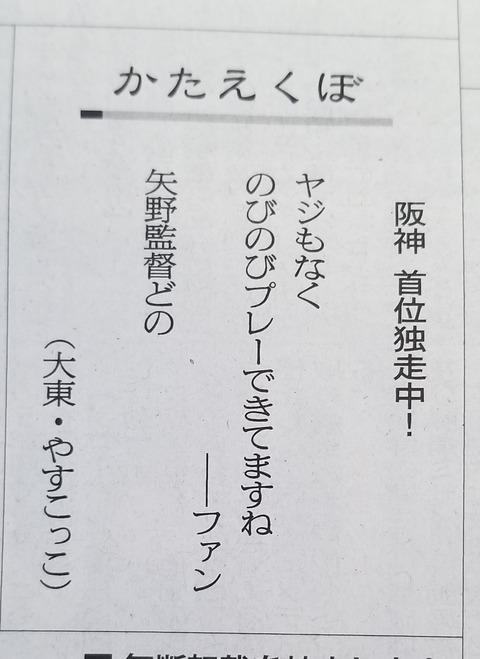 かたえくぼ
阪神 首位独走中！
ヤジもなく
のびのびプレーできてますね
──ファン
矢野監督どの
（大東・やすこっこ）